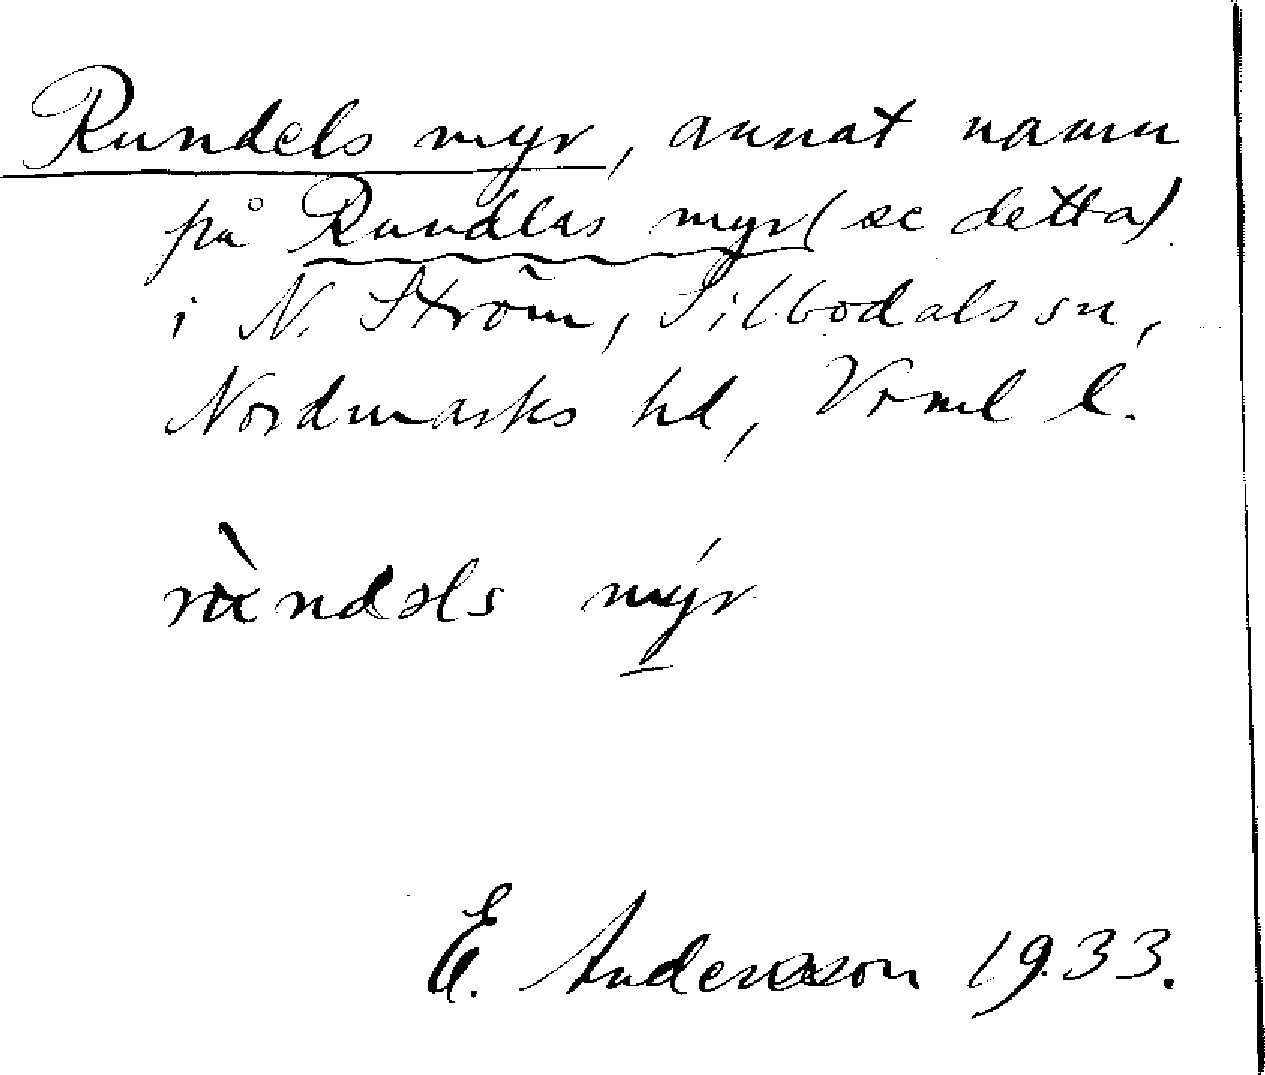 Rundels myr, annat namn
på Rundlas myr (se detta)
i N. Ström, Sillbodals sn,
Nordmarks hd, Vrml l.
myr
E. Andersson 1933.